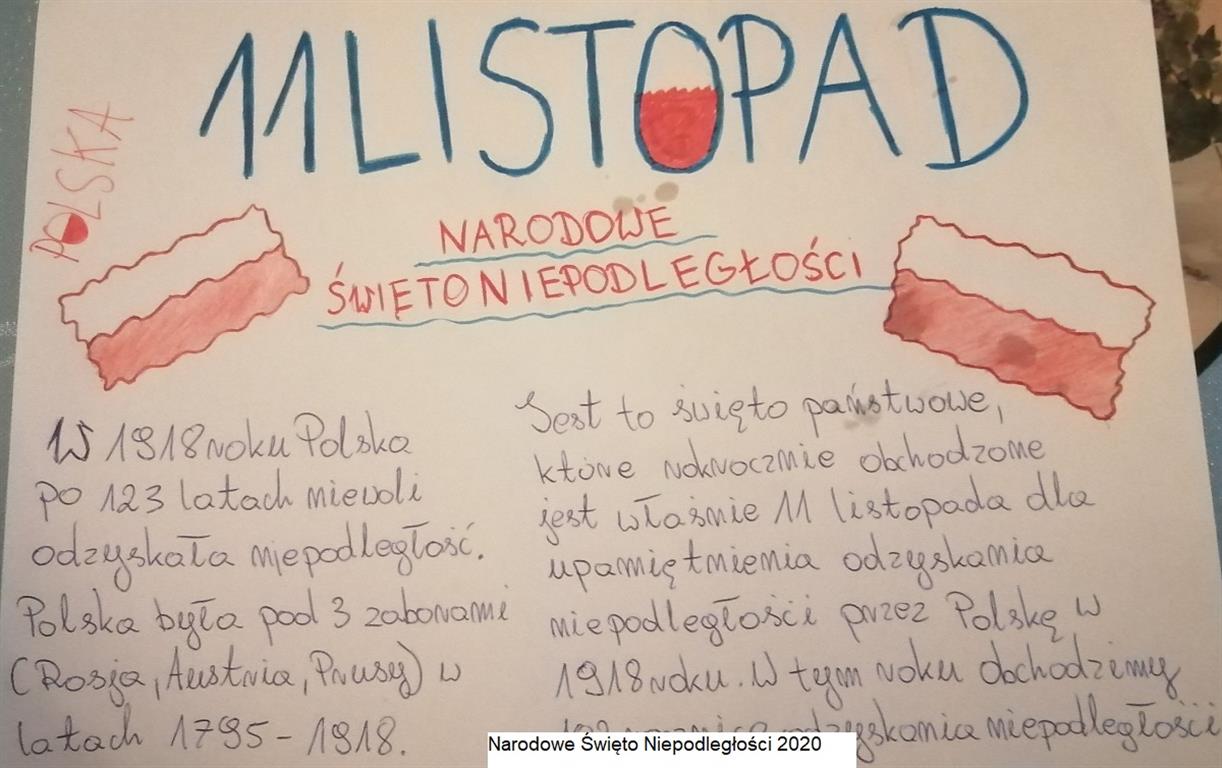 11 LISTOPAD
POLSKA
NARODOWE
ŚWIĘTO NIEPODLEGŁOŚCI
W 1918 roku Polska
po 123 latach niewoli
odzyskała niepodległość.
Polska była pod 3 zaborami
(Rosja, Austria, Prusy) w
latach 1795-1918.
Jest to święto państwowe,
które rokrocznie obchodzone
jest właśnie 11 listopada dla
upamiętnienia odzyskania
niepodległości przez Polskę w
1918 roku. W tym roku obchodzimy
odzyskania niepodległości
Narodowe Święto Niepodległości 2020